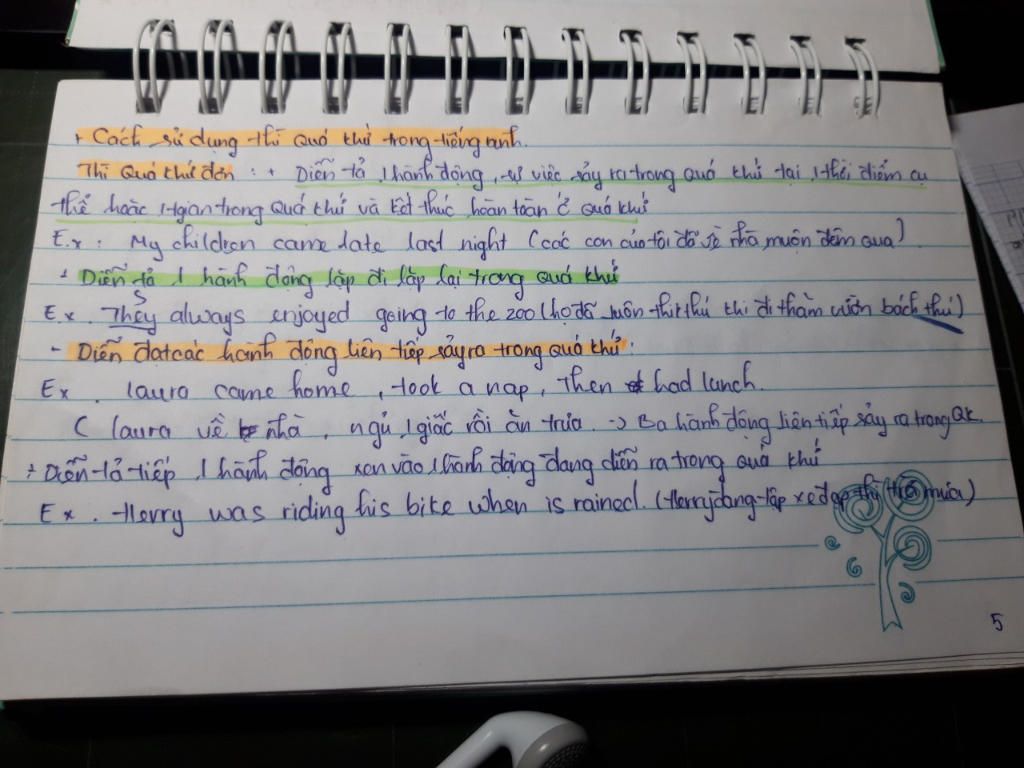 + Cách sử dụng thì quá khứ trong tiếng anh.
Thì Quá khứ đơn : + Diễn tả 1 hành động, sự việc sảy ra trong quá khứ tại 1 thời điểm cụ
thể hoặc 1 tgian trong quá khứ và kết thúc hoàn toàn ở quá khứ
E.x : My children came late last night (các con của tôi đã về nhà muộn đêm qua)
+ Diễn tả 1 hành động lặp đi lặp lại trong quá khứ
S
E.x . They always enjoyed going to the zoo (họ đã luôn thích thú khi đi thăm vườn bách thú)
- Diễn đạt các hành động liên tiếp sảy ra trong quá khứ :
Ex . laura came home , took a nap , then had lunch.
( laura về nhà , ngủ 1 giấc rồi ăn trưa . -> Ba hành động liên tiếp sảy ra trong QK.
+ Diễn tả tiếp 1 hành động xen vào 1 hành động đang diễn ra trong quá khứ
Ex . Herry was riding his bike when is rained. (Herry đang tập xe đạp thì trời mưa)
5